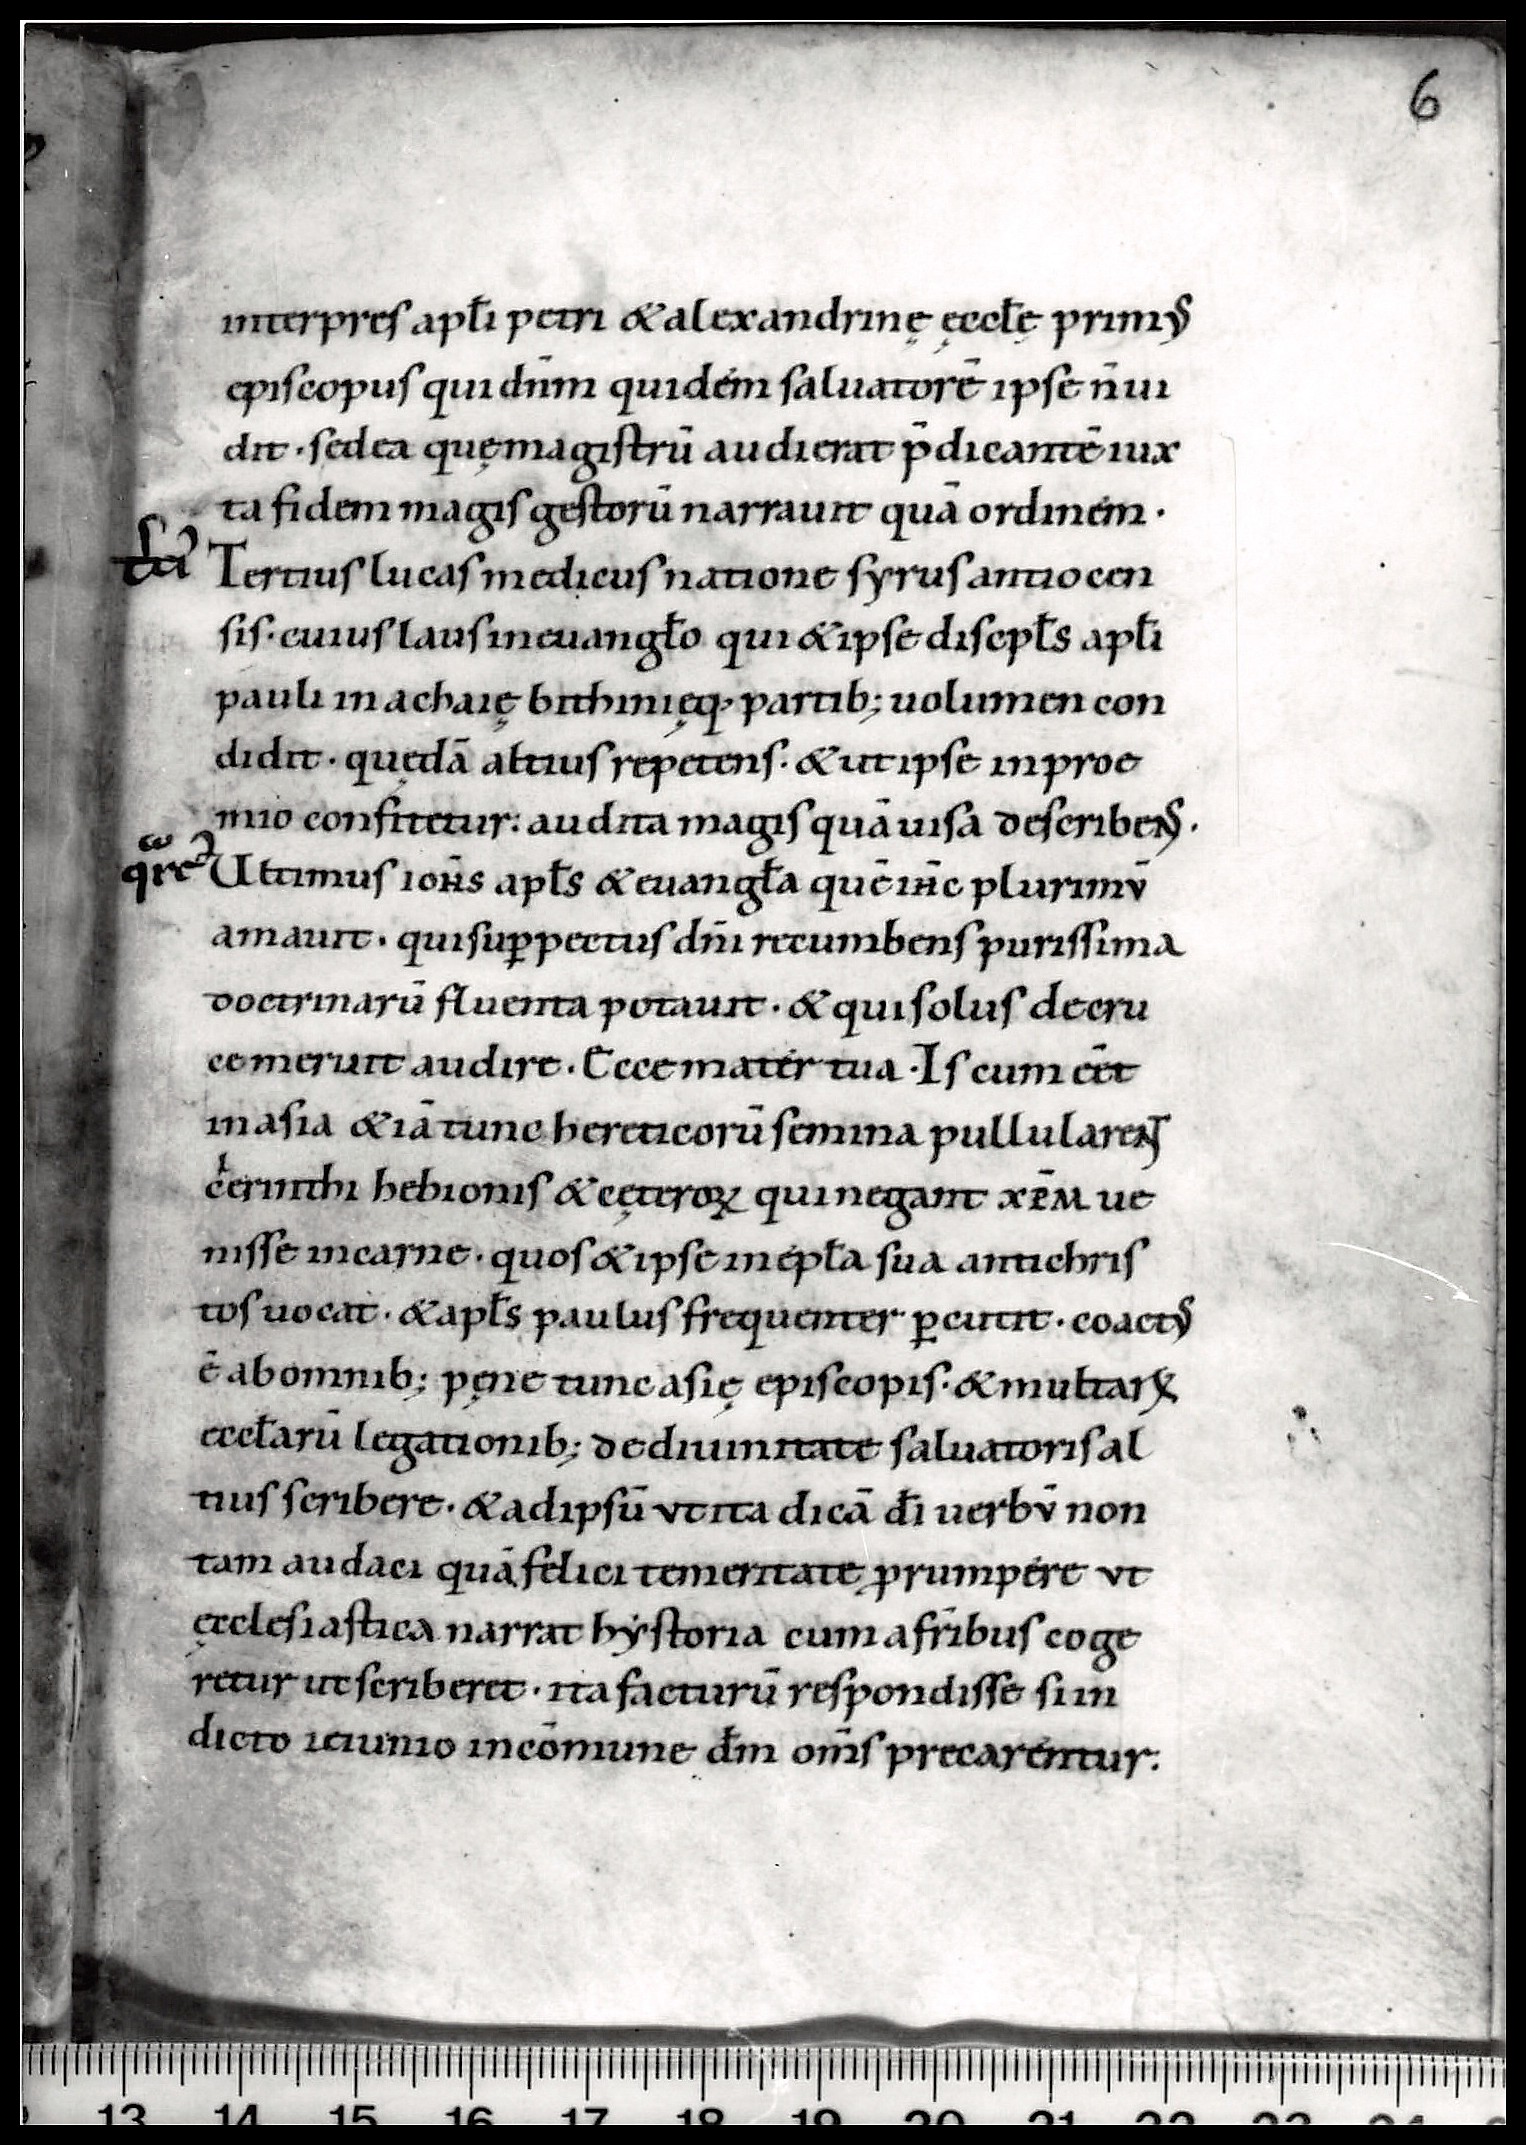 6
interpres apłi petri & alexandrinę ęccłę primꝰ
episcopus qui dn̄m quidem saluatorē ipse n̄ ui
dit · sed ea quę magistrū audierat p̄dicantē iux
ta fidem magis gestorū narrauit quā ordinem ·
Tertius lucas medicus natione syrus antiocen
sis · cuius laus in euangło qui & ipse discipłs apłi
pauli in achaię bithinięq; partib; uolumen con
didit · quędā altius repetens · & ut ipse in proe
mio confitetur : audita magis quā uisa describens ·
Ultimus ioħs apłs & euangła quē iħc plurimū
amauit · qui sup̱ pectus dn̄i recumbens purissima
doctrinarū fluenta potauit · & qui solus de cru
ce meruit audire · Ecce mater tua · Is cum eēt
in asia & iā tunc hereticorū semina pullularent
cherinthi hebionis & cęteroꝝ qui negant xp̄m ue
nisse in carne · quos & ipse in epła sua antichris
tos uocat · & apłs paulus frequenter ꝑcutit · coactꝰ
ē ab omnib; pęne tunc asię episcopis · & multarꝝ
eccłarū legationib; de diuinitate saluatoris al
tius scribere · & ad ipsū ut ita dicā d̄i uerbū non
tam audaci quā felici temeritate ꝓrumpere ut
ęcclesiastica narrat hẏstoria cum a fr̄ibus coge
retur ut scriberet · ita facturū respondisse si in
dicto ieiunio in cōmune d̄m om̄s precarentur :